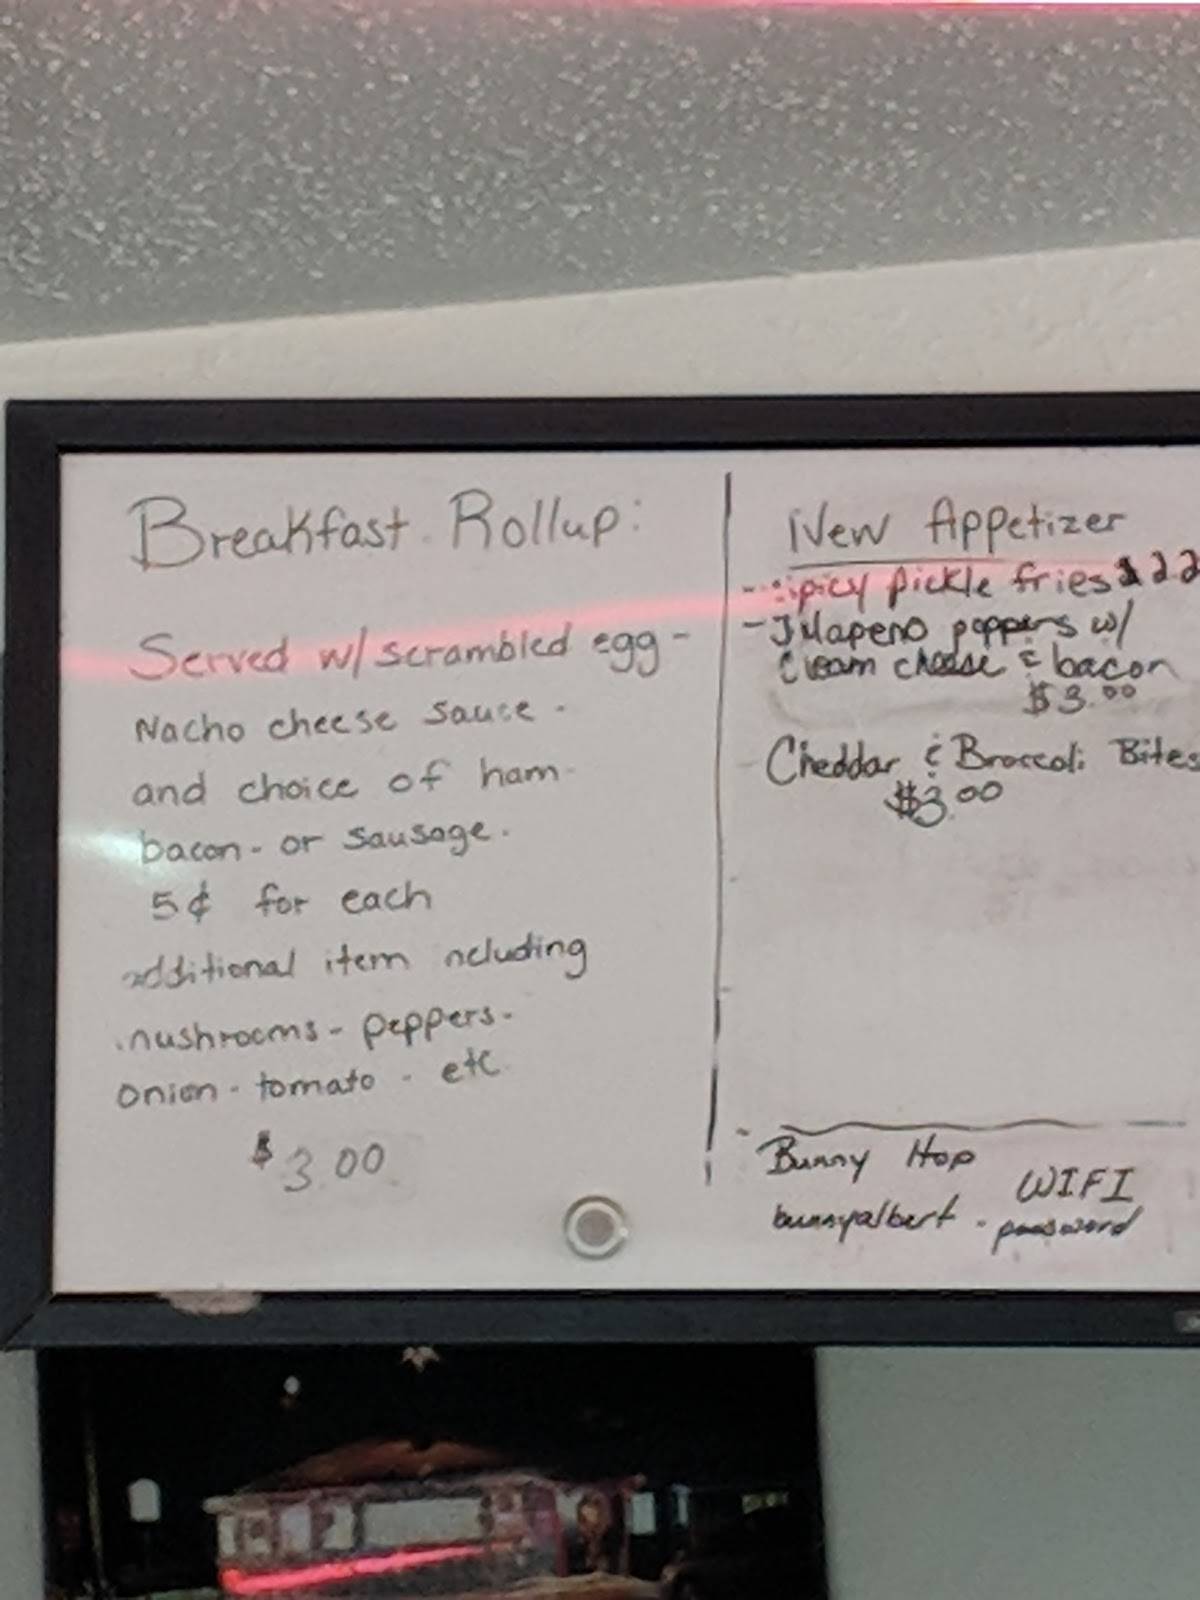 Breakfast Rollup:
Served w/ scrambled egg -
Nacho cheese sauce -
and choice of ham -
bacon - or sausage.
5¢ for each
additional item ncluding
mushrooms - peppers -
onion - tomato - etc
$3.00
New Appetizer
- spicy pickle fries $ 2.2
- Jalapeno poppers w/
Cream cheese & bacon
$3.00
Cheddar & Broccoli Bites
$3.00
Bunny Hop
WIFI
bunnyalbert - password